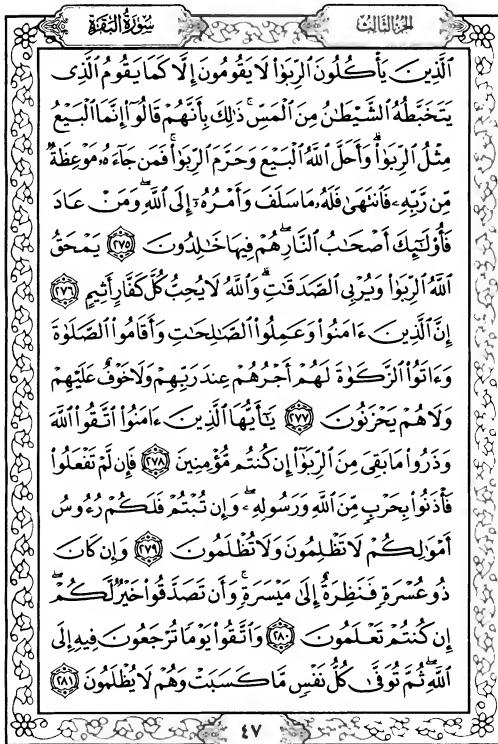 سُورَةُ البَقَرَةِ
الجزء الثالث
ٱلَّذِينَ يَأۡكُلُونَ ٱلرِّبَوٰاْ لَا يَقُومُونَ إِلَّا كَمَا يَقُومُ ٱلَّذِي
يَتَخَبَّطُهُ ٱلشَّيۡطَٰنُ مِنَ ٱلۡمَسِّۚ ذَٰلِكَ بِأَنَّهُمۡ قَالُوٓاْ إِنَّمَا ٱلۡبَيۡعُ
مِثۡلُ ٱلرِّبَوٰاْۗ وَأَحَلَّ ٱللَّهُ ٱلۡبَيۡعَ وَحَرَّمَ ٱلرِّبَوٰاْۚ فَمَن جَآءَهُۥ مَوۡعِظَةٞ
مِّن رَّبِّهِۦ فَٱنتَهَىٰ فَلَهُۥ مَا سَلَفَ وَأَمۡرُهُۥٓ إِلَى ٱللَّهِۖ وَمَنۡ عَادَ
فَأُوْلَٰٓئِكَ أَصۡحَٰبُ ٱلنَّارِۖ هُمۡ فِيهَا خَٰلِدُونَ ٢٧٥ يَمۡحَقُ
ٱللَّهُ ٱلرِّبَوٰاْ وَيُرۡبِي ٱلصَّدَقَٰتِۗ وَٱللَّهُ لَا يُحِبُّ كُلَّ كَفَّارٍ أَثِيمٍ ٢٧٦
إِنَّ ٱلَّذِينَ ءَامَنُواْ وَعَمِلُواْ ٱلصَّٰلِحَٰتِ وَأَقَامُواْ ٱلصَّلَوٰةَ
وَءَاتَوُاْ ٱلزَّكَوٰةَ لَهُمۡ أَجۡرُهُمۡ عِندَ رَبِّهِمۡ وَلَا خَوۡفٌ عَلَيۡهِمۡ
وَلَا هُمۡ يَحۡزَنُونَ ٢٧٧ يَٰٓأَيُّهَا ٱلَّذِينَ ءَامَنُواْ ٱتَّقُواْ ٱللَّهَ
وَذَرُواْ مَا بَقِيَ مِنَ ٱلرِّبَوٰٓاْ إِن كُنتُم مُّؤۡمِنِينَ ٢٧٨ فَإِن لَّمۡ تَفۡعَلُواْ
فَأۡذَنُواْ بِحَرۡبٖ مِّنَ ٱللَّهِ وَرَسُولِهِۦۖ وَإِن تُبۡتُمۡ فَلَكُمۡ رُءُوسُ
أَمۡوَٰلِكُمۡ لَا تَظۡلِمُونَ وَلَا تُظۡلَمُونَ ٢٧٩ وَإِن كَانَ
ذُو عُسۡرَةٖ فَنَظِرَةٌ إِلَىٰ مَيۡسَرَةٖۚ وَأَن تَصَدَّقُواْ خَيۡرٞ لَّكُمۡ
إِن كُنتُمۡ تَعۡلَمُونَ ٢٨٠ وَٱتَّقُواْ يَوۡمٗا تُرۡجَعُونَ فِيهِ إِلَى
ٱللَّهِۖ ثُمَّ تُوَفَّىٰ كُلُّ نَفۡسٖ مَّا كَسَبَتۡ وَهُمۡ لَا يُظۡلَمُونَ ٢٨١
٤٧